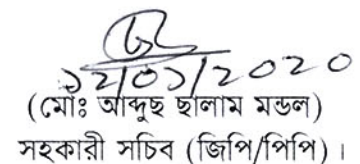 ১২/০১/২০২০
(মোঃ আব্দুছ ছালাম মন্ডল)
সহকারী সচিব (জিপি/পিপি)।